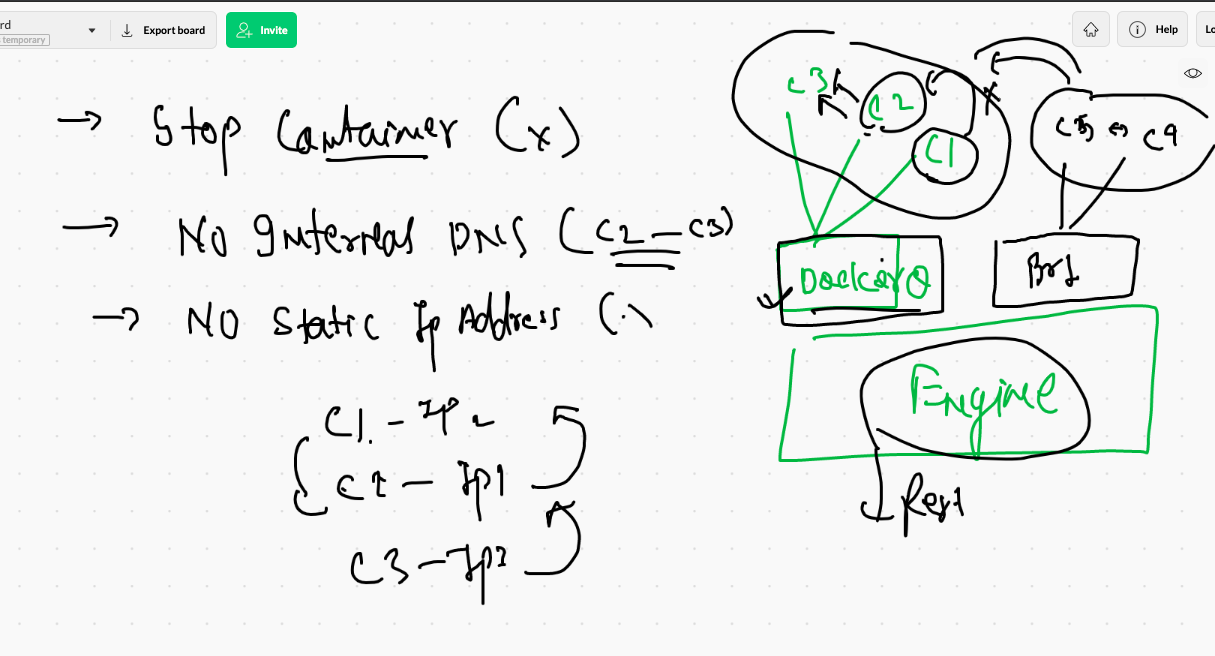 rd
temporary
Export board
Invite
Help
Lo
→ Stop Container (x)
→ No Internal DNS (C2 – C3)
→ NO Static Ip Address (.\
C1. - IP2
C2 - Ip1
C3 - Ip2
C3
C2
C1
x
C9
Docker0
Br1
Engine
Rest